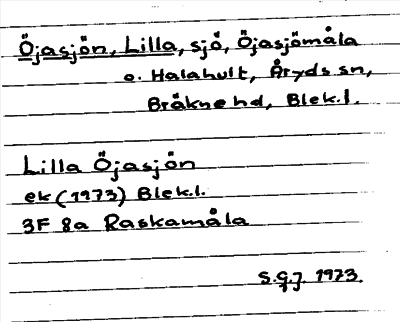 Öjasjön, Lilla, sjö, Öjasjömåla
o. Halahult, Åryds sn,
Bräkne hd, Blek.l.
Lilla Öjasjön
ek (1973) Blek.l.
3F 8a Raskamåla
S.G.J. 1973.